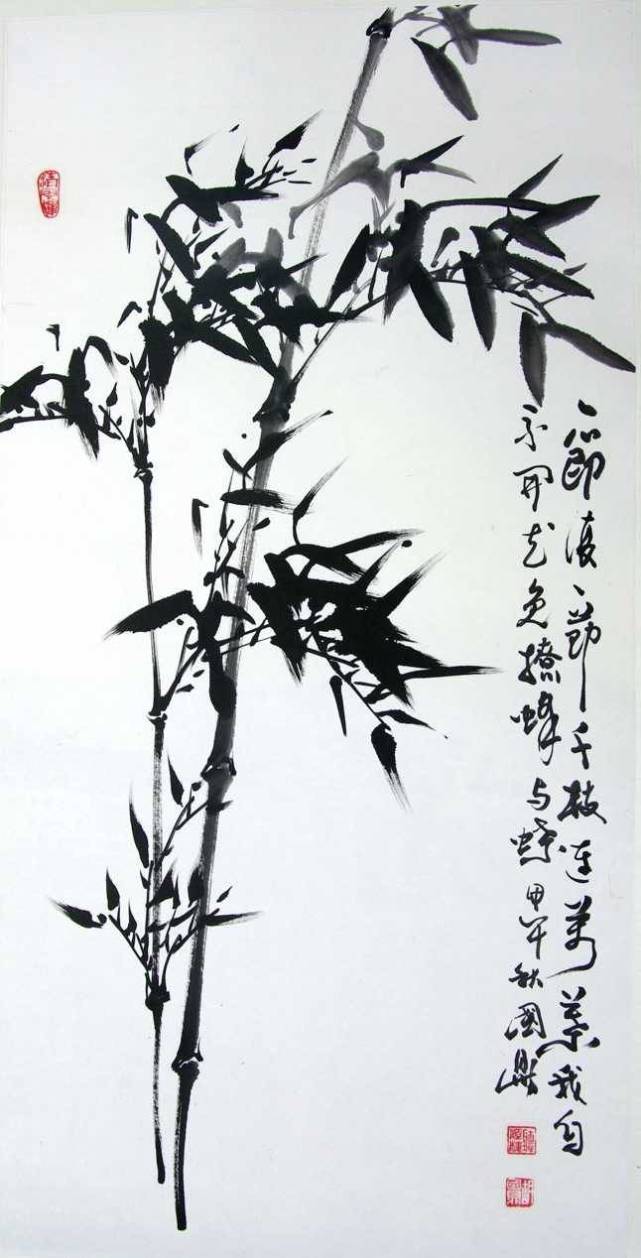 一節復一節千枝连萬葉我自
不開花免撩蜂与蝶甲午秋國鼎